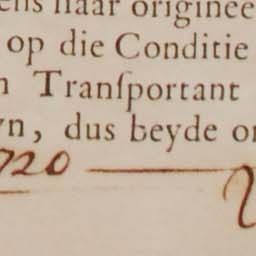 ens naar originee
op die Conditie
n Tranſportant
yn, dus beyde on
720